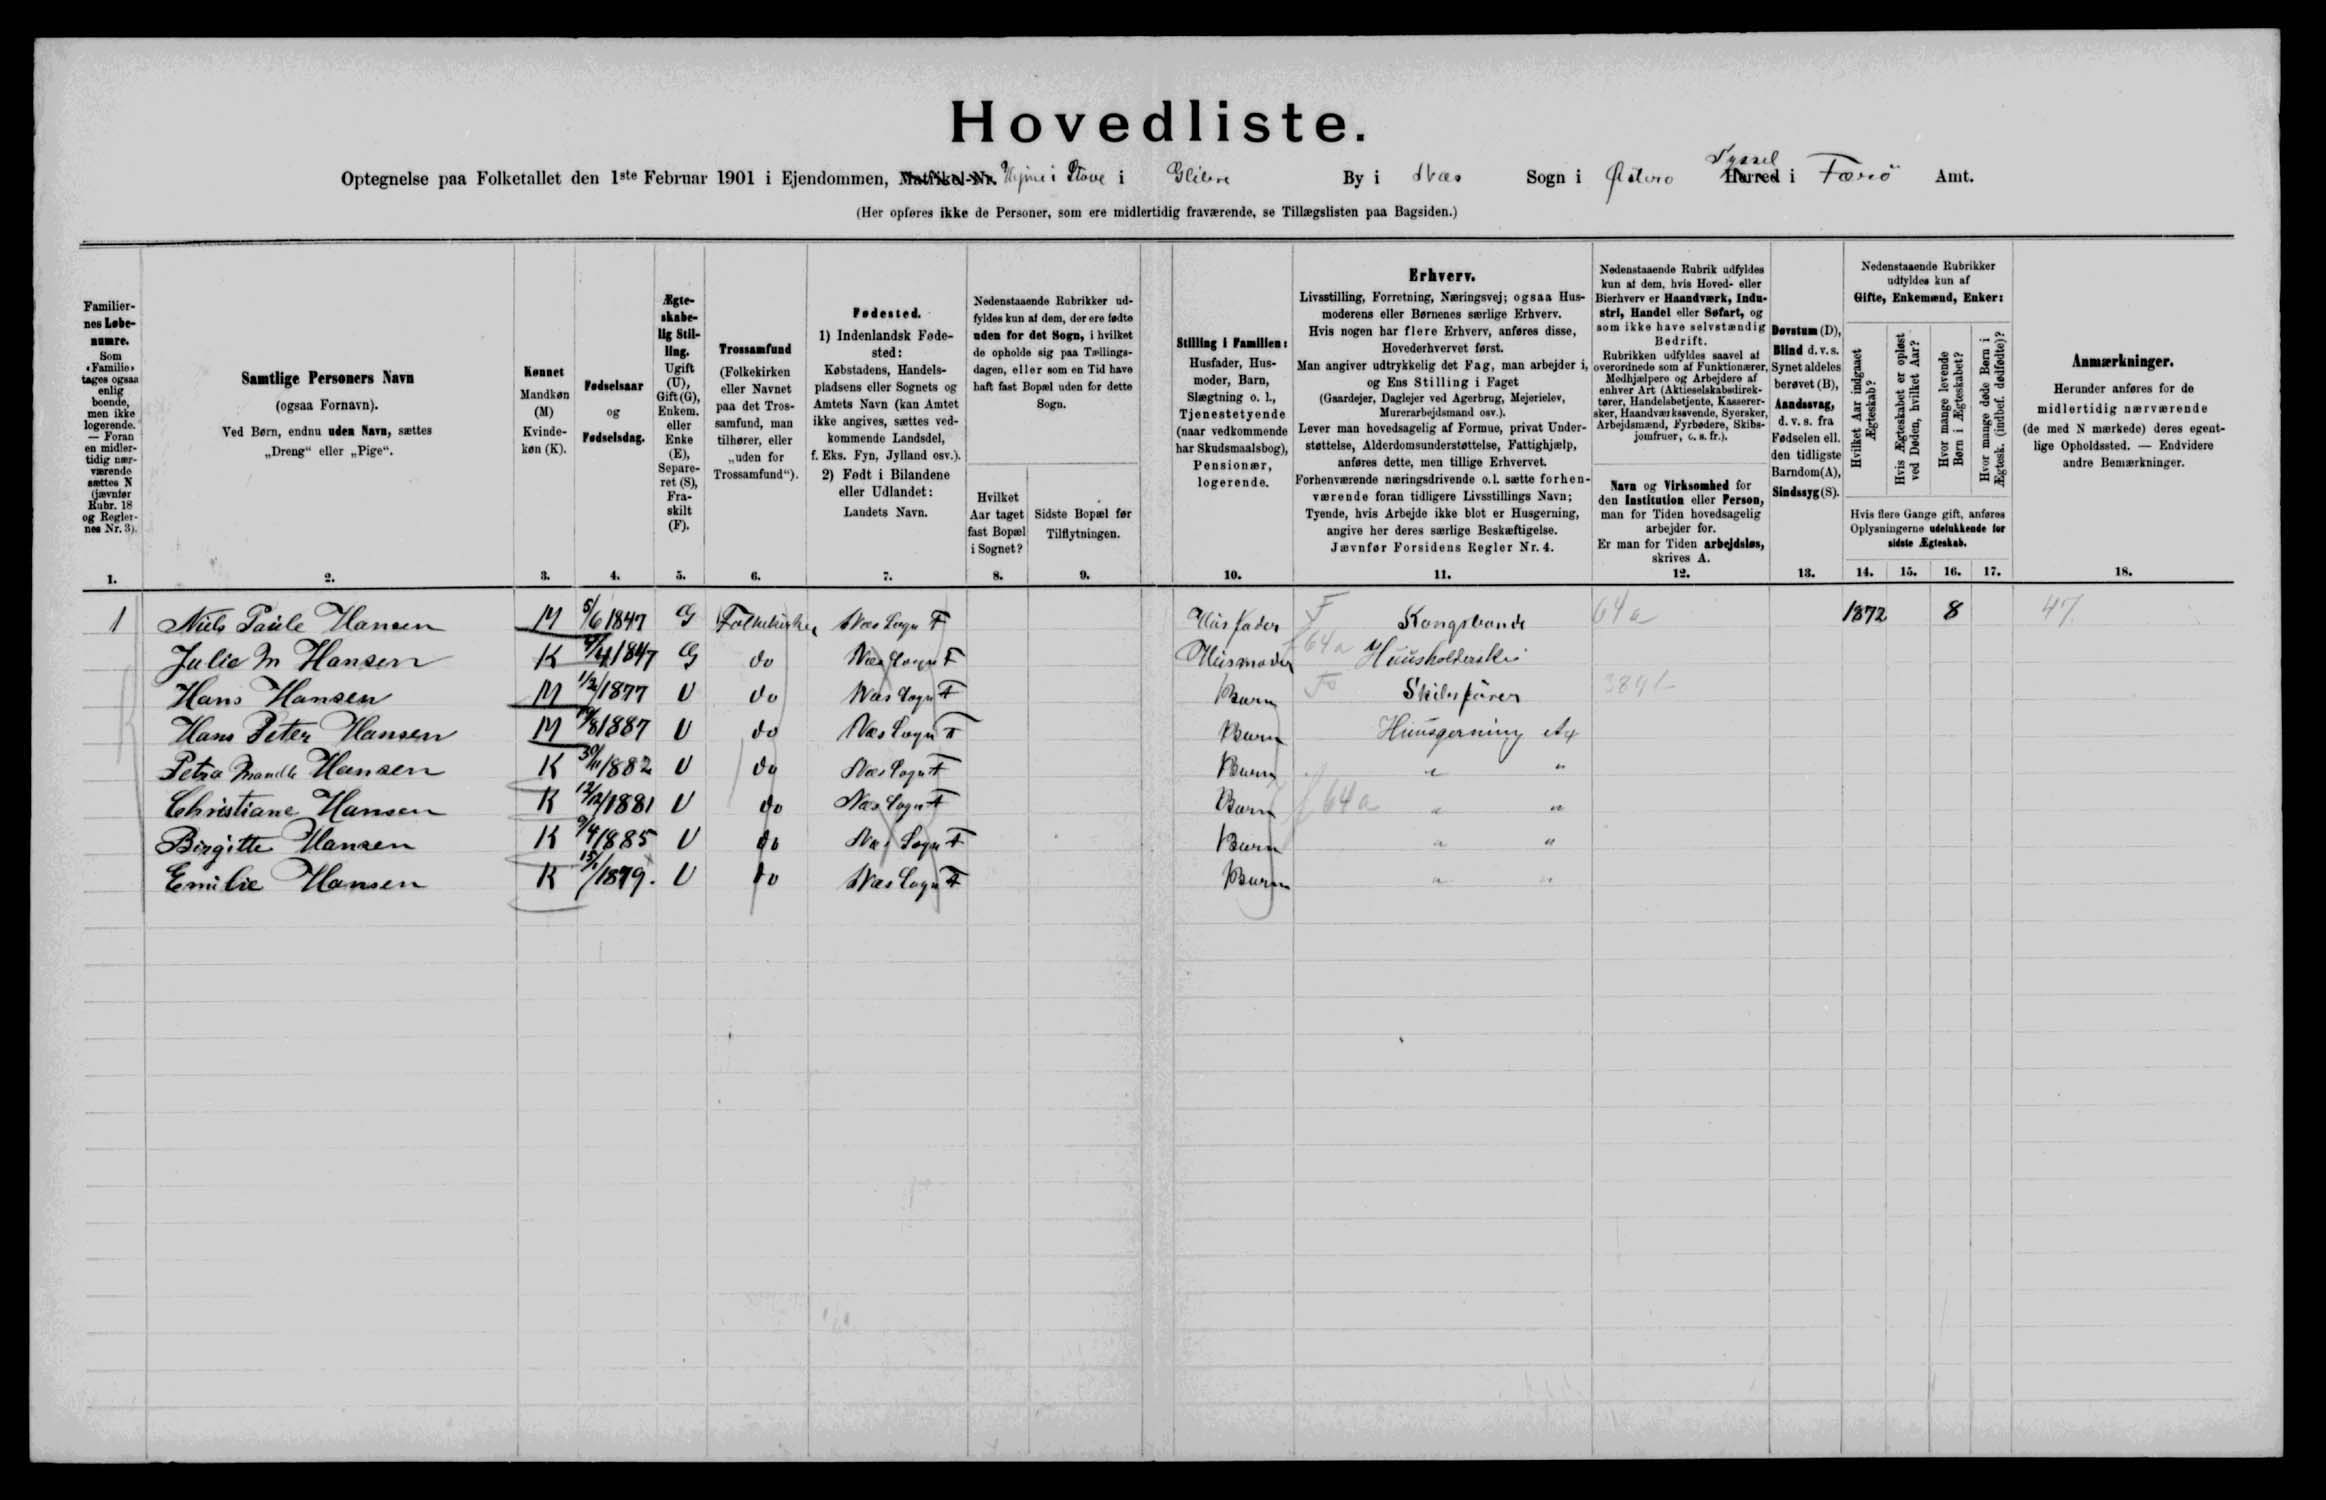 Hovedliste.
Optegnelse paa Folketallet den 1ste Februar 1901 i Ejendommen, Matrikel-Nr. Hjme i Stove i Glibre By i Næs Sogn i Østerø Herred Syssel i Færø Amt.
(Her opføres ikke de Personer, som ere midlertidig fraværende, se Tillægslisten paa Bagsiden.)
Familier-
nes Løbe-
numre.
Som
«Familie»
tages ogsaa
enlig
boende,
men ikke
logerende.
— Foran
en midler-
tidig nær-
værende
sættes N
(jævnfør
Rubr. 18
og Regler-
nes Nr. 3).
1.
Samtlige Personers Navn
(ogsaa Fornavn).
Ved Børn, endnu uden Navn, sættes
„Dreng“ eller „Pige“.
2.
Kønnet
Mandkøn
(M)
Kvinde-
køn (K).
3.
Fødselsaar
og
Fødselsdag.
4.
Ægte-
skabe-
lig Stil-
ling.
Ugift
(U),
Gift (G),
Enkem.
eller
Enke
(E),
Separe-
ret (S),
Fra-
skilt
(F).
5.
Trossamfund
(Folkekirken
eller Navnet
paa det Tros-
samfund, man
tilhører, eller
„uden for
Trossamfund“).
6.
Fødested.
1) Indenlandsk Føde-
sted:
Købstadens, Handels-
pladsens eller Sognets og
Amtets Navn (kan Amtet
ikke angives, sættes ved-
kommende Landsdel,
f. Eks. Fyn, Jylland osv.).
2) Født i Bilandene
eller Udlandet:
Landets Navn.
7.
Nedenstaaende Rubrikker ud-
fyldes kun af dem, der ere fødte
uden for det Sogn, i hvilket
de opholde sig paa Tællings-
dagen, eller som en Tid have
haft fast Bopæl uden for dette
Sogn.
Hvilket
Aar taget
fast Bopæl
i Sognet?
8.
Sidste Bopæl før
Tilflytningen.
9.
Stilling i Familien:
Husfader, Hus-
moder, Barn,
Slægtning o. l.,
Tjenestetyende
(naar vedkommende
har Skudsmaalsbog),
Pensionær,
logerende.
10.
Erhverv.
Livsstilling, Forretning, Næringsvej; ogsaa Hus-
moderens eller Børnenes særlige Erhverv.
Hvis nogen har flere Erhverv, anføres disse,
Hovederhvervet først.
Man angiver udtrykkelig det Fag, man arbejder i,
og Ens Stilling i Faget
(Gaardejer, Daglejer ved Agerbrug, Mejerielev,
Murerarbejdsmand osv.).
Lever man hovedsagelig af Formue, privat Under-
støttelse, Alderdomsunderstøttelse, Fattighjælp,
anføres dette, men tillige Erhvervet.
Forhenværende næringsdrivende o.l. sætte forhen-
værende foran tidligere Livsstillings Navn;
Tyende, hvis Arbejde ikke blot er Husgerning,
angive her deres særlige Beskæftigelse.
Jævnfør Forsidens Regler Nr. 4.
11.
Nedenstaaende Rubrik udfyldes
kun af dem, hvis Hoved- eller
Bierhverv er Haandværk, Indu-
stri, Handel eller Søfart, og
som ikke have selvstændig
Bedrift.
Rubrikken udfyldes saavel af
overordnede som af Funktionærer,
Medhjælpere og Arbejdere af
enhver Art (Aktieselskabsdirek-
tører, Handelsbetjente, Kasserer-
sker, Haandværkssvende, Syersker,
Arbejdsmænd, Fyrbødere, Skibs-
jomfruer, o. s. fr.).
Navn og Virksomhed for
den Institution eller Person,
man for Tiden hovedsagelig
arbejder for.
Er man for Tiden arbejdsløs,
skrives A.
12.
Døvstum (D),
Blind d. v. s.
Synet aldeles
berøvet (B),
Aandssvag,
d. v. s. fra
Fødselen ell.
den tidligste
Barndom (A),
Sindssyg (S).
13.
Nedenstaaende Rubrikker
udfyldes kun af
Gifte, Enkemænd, Enker:
Hvilket Aar indgaaet
Ægteskab?
Hvis Ægteskabet er opløst
ved Døden, hvilket Aar?
Hvor mange levende
Børn i Ægteskabet?
Hvor mange døde Børn i
Ægtesk. (indbef. dødfødte)?
Hvis flere Gange gift, anføres
Oplysningerne udelukkende for
sidste Ægteskab.
14. 15. 16. 17.
Anmærkninger.
Herunder anføres for de
midlertidig nærværende
(de med N mærkede) deres egent-
lige Opholdssted. — Endvidere
andre Bemærkninger.
18.
1 Niels Paule Hansen M 5/6 1847 G Folkekirken Næs Sogn F Husfader F Kongsbonde 64a 1872 8 47
Julie M Hansen K 1847 G do Næs Sogn F Husmoder f 64a Huusholderske
Hans Hansen M 1/2 1877 U do Næs Sogn F Barn Fo Skibsfører
Hans Peter Hansen M /8 1887 U do Næs Sogn F Barn Huusgerning
Petra Hansen K 30/11 1882 U do Næs Sogn F Barn " "
Christiane Hansen K 12/12 1881 U do Næs Sogn F Barn f 64a " "
Birgitte Hansen K 9/4 1885 U do Næs Sogn F Barn " "
Emilie Hansen K 15/1 1879. U do Næs Sogn F Barn " "